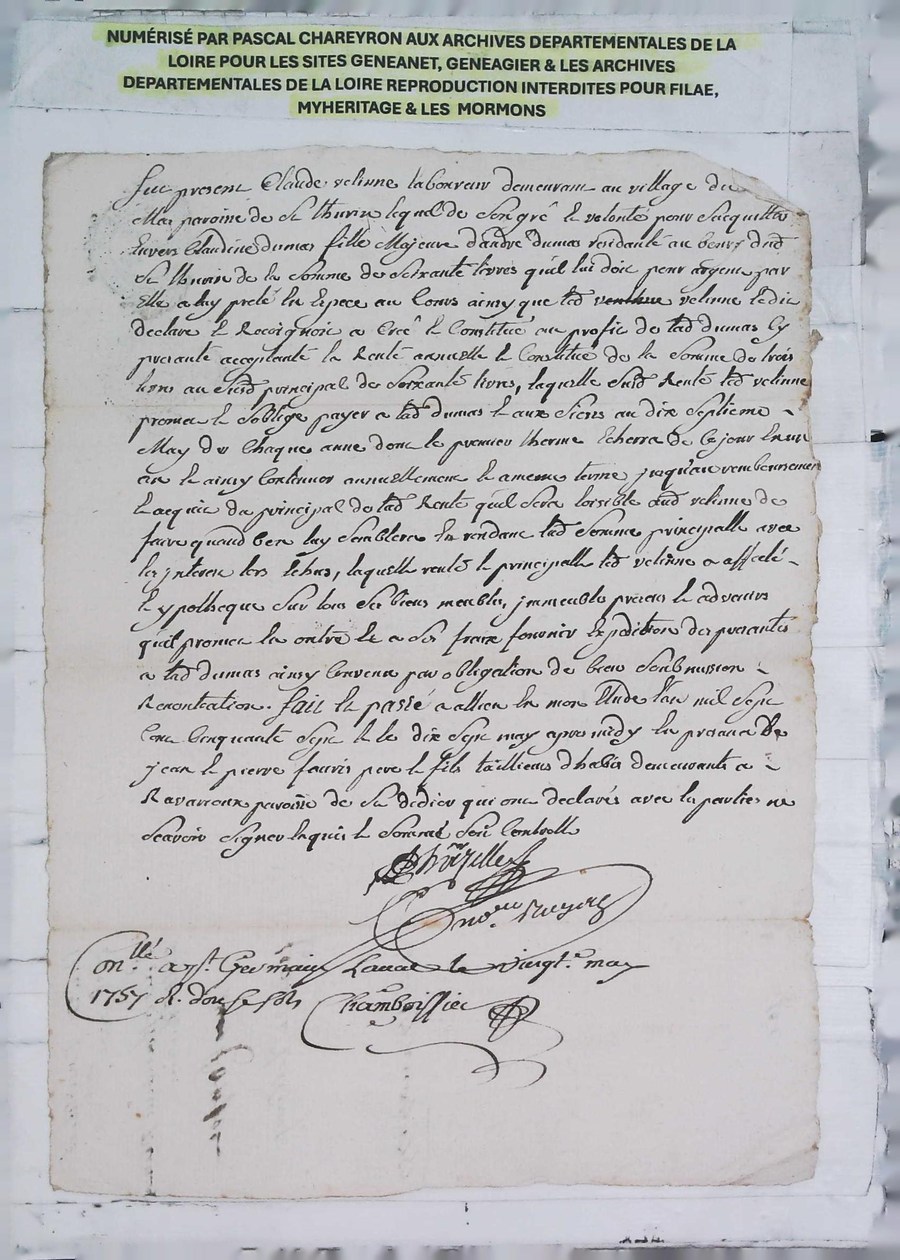 NUMÉRISÉ PAR PASCAL CHAREYRON AUX ARCHIVES DEPARTEMENTALES DE LA
LOIRE POUR LES SITES GENEANET, GENEAGIER & LES ARCHIVES
DEPARTEMENTALES DE LA LOIRE REPRODUCTION INTERDITES POUR FILAE,
MYHERITAGE & LES MORMONS
fut present Claude velinne laboureur demeurant au village du
Mas paroisse de St thurin lequel de son gré et volonté pour Sacquitter
Envers Claudine dumas fille Majeure dandré dumas residante au bourg dud
St thurin de la somme de soixante livres quil lui doit pour argent par
Elle a luy preté En Espece au Cours ainsy que led velinne le dit
declare et Recognoit a Creé et Constitué au profit de lad dumas Cy
presante acceptante la Rente annuelle et Constitué de la somme de trois
livres au Susd principal de soixante livres, laquelle susd Rente led velinne
promet et soblige payer a lad dumas et aux siens au dix septieme
May de Chaque anne dont le premier therme Echerra de Ce jour En un
an et ainsy Continuer annuellement et a meme terme jusqu'au remboursement
Et acquit du principal de lad Rente quil sera loisible aud velinne de
faire quand bon luy semblera En rendant lad somme principalle avec
les interest lors Echus, laquelle rente et principalle led velinne a affecté
Et ypotheque sur tous ses biens meubles, jmmeubles presens et advenirs
quil promet En outre et a ses fraix fournir Expedition des presantes
a lad dumas ainsy Convenu par obligation de bien soubmission
Renontiation. fait et passé a allieu En mon Etude l'an mil sept
Cent Cinquante sept et le dix sept may apres midy En presance de
jean et pierre fauris pere et fils tailleurs dhabis demeurants a
Ravarioux paroisse de St didier qui ont declarés avec la partie ne
scavoir signer Enquis et sommé soit Controllé
nore Royal
onllé a st Germain Laval le vingt. may
1757 R. douze sols Chamboissier